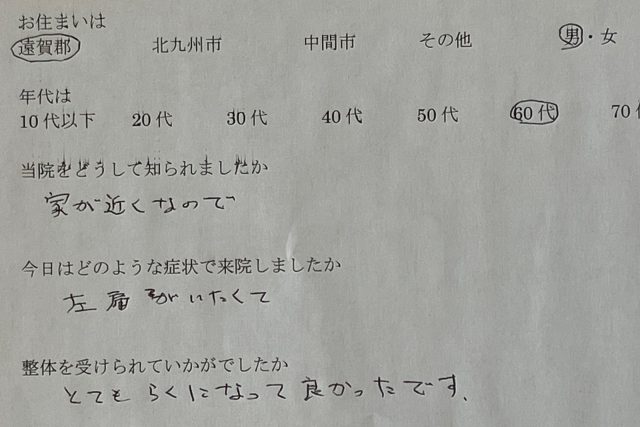 お住まいは
遠賀郡 北九州市 中間市 その他 男・女
年代は
10代以下 20代 30代 40代 50代 60代 70代
当院をどうして知られましたか
家が近くなので
今日はどのような症状で来院しましたか
左肩がいたくて
整体を受けられていかがでしたか
とてもらくになって良かったです.